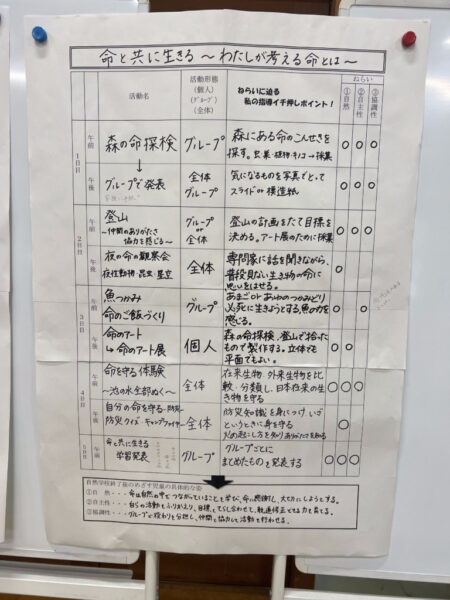 命と共に生きる 〜わたしが考える命とは〜
活動名
活動形態
(個人)
(グループ)
(全体)
ねらいに迫る
私の指導イチ押しポイント！
ねらい
①自然
②自主性
③協調性
1日目
午前
森の命探検
グループ
森にある命のこんせきを
探す。虫・巣・植物・キノコ→採集
○ ○ ○
午後
↓
グループで発表
全体
グループ
気になるものを写真でとって
スライドor模造紙
○ ○ ○
2日目
午前
登山
〜仲間のありがたさ
協力を感じる〜
グループ
or
全体
登山の計画をたて目標を
決める。アート展のために採集
○ ○ ○
午後
夜の命の観察会
夜行動物・昆虫・星空
全体
専門家に話を聞きながら、
普段見ない生き物の命に
思いをはせる。
○
3日目
午前
魚つかみ
命のご飯づくり
グループ
あまごorあゆのつかみどり
必死に生きようとする魚の力を
感じる。
○ ○
午後
命のアート
↳命のアート展
個人
森の命探検、登山で拾った
もので製作する。立体でも
平面でもよい。
○ ○
4日目
午前
命を守る体験
〜池の水全部ぬく〜
全体
在来生物、外来生物を比
較・分類し、日本在来の生
き物を守る
○ ○ ○
午後
自分の命を守る・防災
防災クイズ・キャンプファイヤー
全体
防災知識を身につけ、いざ
というときに身を守る
火の起こし方を知りありがたさを知る
○
5日目
午前
命と共に生きる
学習発表
グループ
グループごとに
まとめたものを発表する
○ ○ ○
自然学校終了後のめざす児童の具体的な姿
①自 然・・・命は自然の中でつながっていることを学び、命に感謝し、大切にしようとする。
②自主性・・・自らの活動をふりかえり、目標とてらし合わせて、軌道修正できる力を育てる。
③協調性・・・グループで役わりを分担し、仲間と協力して活動を行わせる。